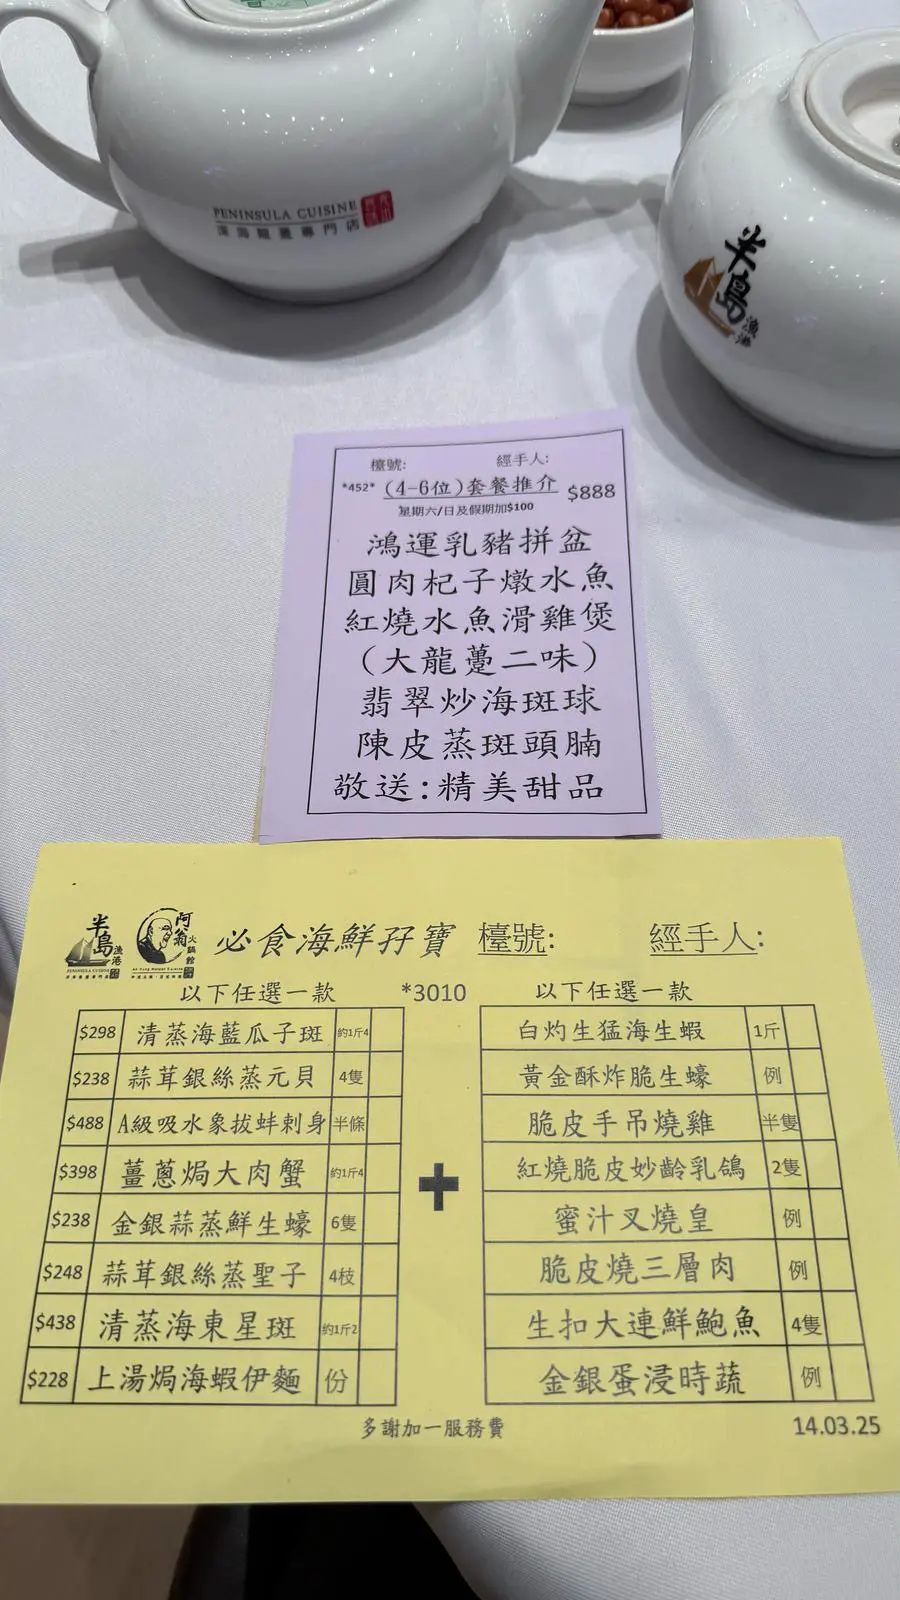 PENINSULA CUISINE
專門店
半島漁港
檯號: 經手人:
*452* (4-6位)套餐推介 $888
星期六/日及假期加$100
鴻運乳豬拼盆
圓肉杞子燉水魚
紅燒水魚滑雞煲
(大龍躉二味)
翡翠炒海斑球
陳皮蒸斑頭腩
敬送:精美甜品
半島漁港 PENINSULA CUISINE 阿翁火鍋館 必食海鮮孖寶 檯號: 經手人:
以下任選一款 *3010 以下任選一款
$298 清蒸海藍瓜子斑 約1斤4 白灼生猛海生蝦 1斤
$238 蒜茸銀絲蒸元貝 4隻 黃金酥炸脆生蠔 例
$488 A級吸水象拔蚌刺身 半條 脆皮手吊燒雞 半隻
$398 薑蔥焗大肉蟹 約1斤4 + 紅燒脆皮妙齡乳鴿 2隻
$238 金銀蒜蒸鮮生蠔 6隻 蜜汁叉燒皇 例
$248 蒜茸銀絲蒸聖子 4枝 脆皮燒三層肉 例
$438 清蒸海東星斑 約1斤2 生扣大連鮮鮑魚 4隻
$228 上湯焗海蝦伊麵 份 金銀蛋浸時蔬 例
多謝加一服務費 14.03.25